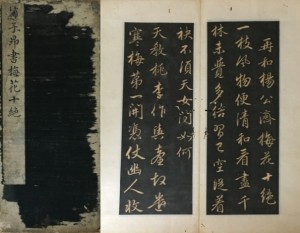 趙子昂書梅花十絕
再和楊公濟梅花十絕
一枝風物便清和看盡千
林未覺多結習已空從着
袂不須天女問如何
天教桃李作輿臺故遣
寒梅第一開憑仗幽人收